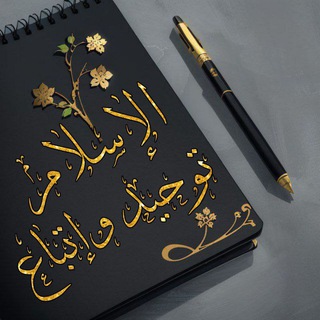 الإسلام
توحيد وإتباع